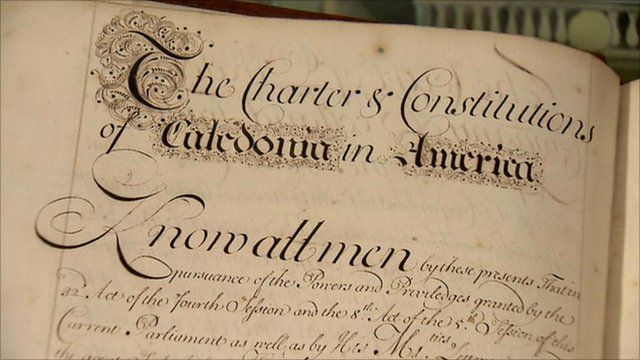 The Charter & Constitutions
of Caledonia in America
Know all men by these presents That in
pursuance of the Powers and Priviledges granted by the
32 Act of the fourth Session and the 8th Act of the 5th Session of this
Current Parliament as well as by His Ma.ties